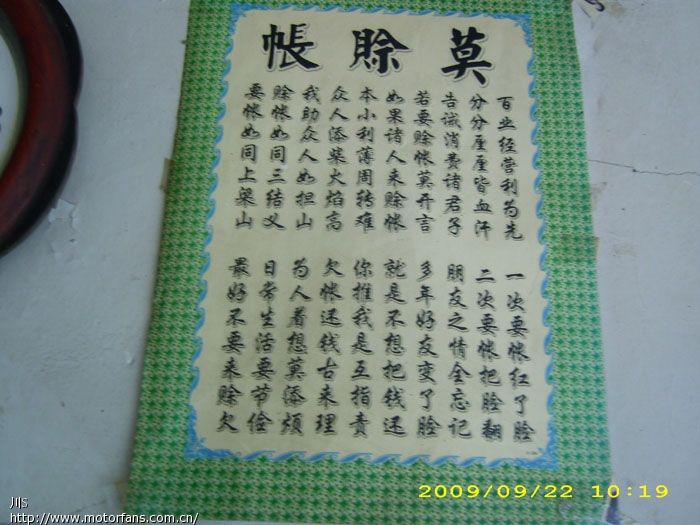 莫賒帳
百业经营利为先
分分厘厘皆血汗
告诫消费诸君子
若要赊帐莫开言
如果诸人来赊帐
本小利薄周转难
众人添柴火焰高
我助众人如担山
赊帐如同三结义
要帐如同上梁山
一次要帐红了脸
二次要帐把脸翻
朋友之情全忘记
多年好友变了脸
就是不想把钱还
你推我是互指责
欠帐还钱古来理
为人着想莫添烦
日常生活要节俭
最好不要来赊欠
2009/09/22 10:19
JIS
http://www.motorfans.com.cn/